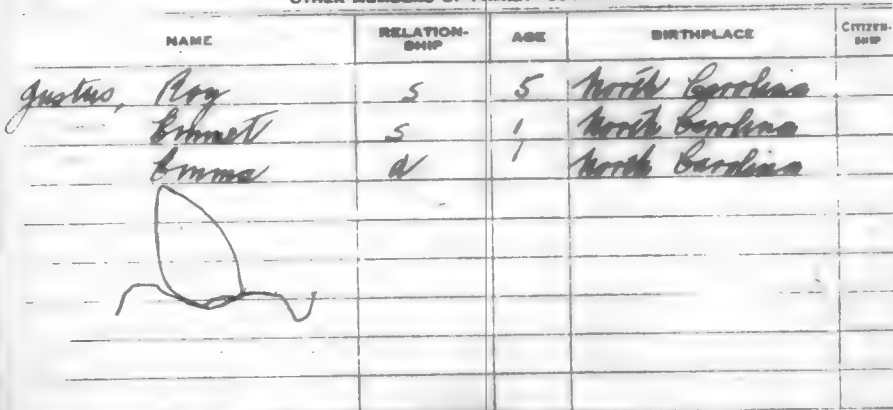 OTHER MEMBERS OF FAMILY
NAME RELATION-SHIP AGE BIRTHPLACE CITIZEN-SHIP
Justus, Roy s 5 North Carolina
Emmet s 1 North Carolina
Emma d 1 North Carolina